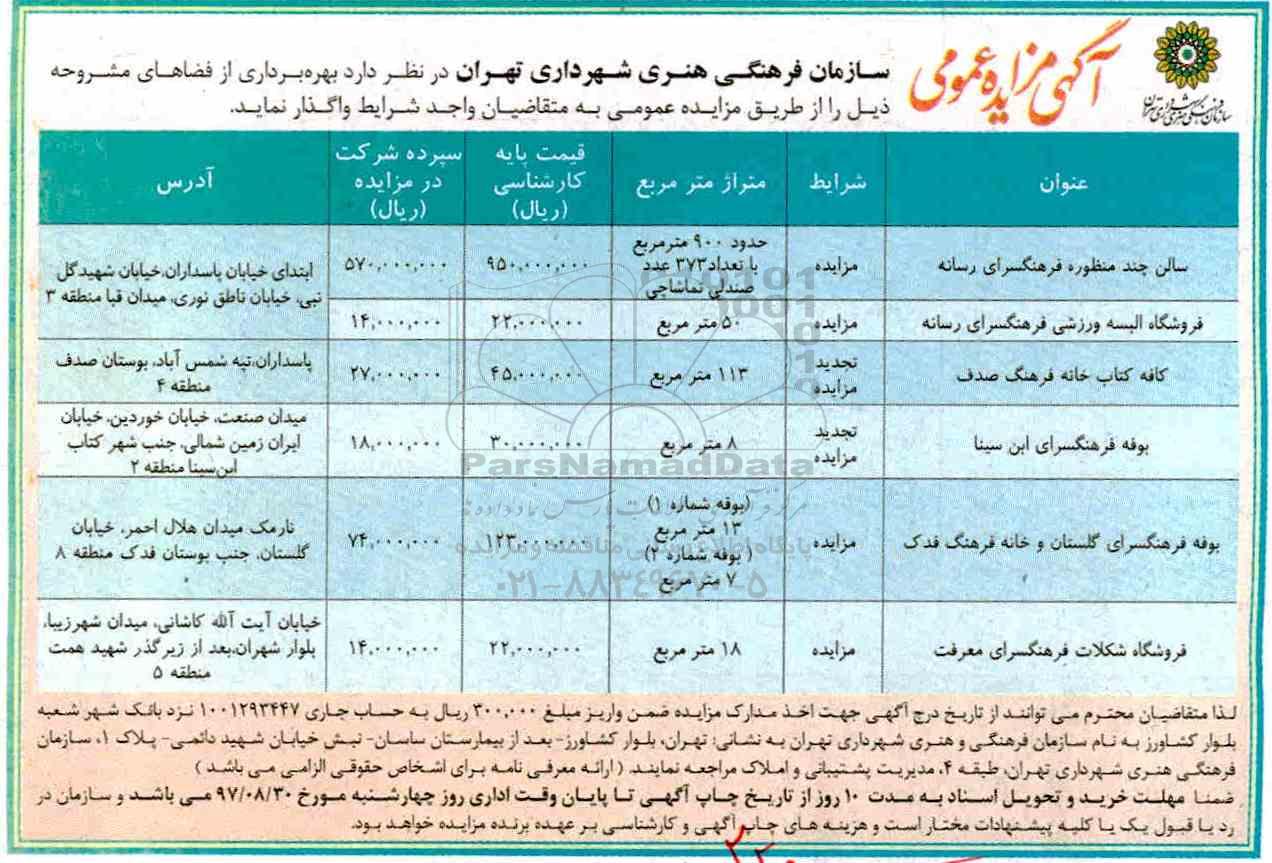 آگهی مزایده عمومی
سازمان فرهنگی هنری شهرداری تهران
سازمان فرهنگی هنری شهرداری تهران در نظر دارد بهره‌برداری از فضاهای مشروحه
ذیل را از طریق مزایده عمومی به متقاضیان واجد شرایط واگذار نماید.
عنوان
شرایط
متراژ متر مربع
قیمت پایه
کارشناسی
(ریال)
سپرده شرکت
در مزایده
(ریال)
آدرس
سالن چند منظوره فرهنگسرای رسانه
مزایده
حدود ۹۰۰ مترمربع
با تعداد ۳۷۳ عدد
صندلی تماشاچی
۹۵۰,۰۰۰,۰۰۰
۵۷۰,۰۰۰,۰۰۰
ابتدای خیابان پاسداران،خیابان شهیدگل
نبی، خیابان ناطق نوری، میدان قبا منطقه ۳
فروشگاه البسه ورزشی فرهنگسرای رسانه
مزایده
۵۰ متر مربع
۲۲,۰۰۰,۰۰۰
۱۴,۰۰۰,۰۰۰
کافه کتاب خانه فرهنگ صدف
تجدید
مزایده
۱۱۳ متر مربع
۴۵,۰۰۰,۰۰۰
۲۷,۰۰۰,۰۰۰
پاسداران،تپه شمس آباد، بوستان صدف
منطقه ۴
بوفه فرهنگسرای ابن سینا
تجدید
مزایده
۸ متر مربع
۳۰,۰۰۰,۰۰۰
۱۸,۰۰۰,۰۰۰
میدان صنعت، خیابان خوردین، خیابان
ایران زمین شمالی، جنب شهر کتاب
ابن‌سینا منطقه ۲
بوفه فرهنگسرای گلستان و خانه فرهنگ فدک
مزایده
(بوفه شماره ۱)
۱۳ متر مربع
( بوفه شماره ۲)
۷ متر مربع
۱۲۳,۰۰۰,۰۰۰
۷۴,۰۰۰,۰۰۰
نارمک میدان هلال احمر، خیابان
گلستان، جنب بوستان فدک منطقه ۸
فروشگاه شکلات فرهنگسرای معرفت
مزایده
۱۸ متر مربع
۲۲,۰۰۰,۰۰۰
۱۴,۰۰۰,۰۰۰
خیابان آیت الله کاشانی، میدان شهرزیبا،
بلوار شهران،بعد از زیرگذر شهید همت
منطقه ۵
ParsNamadData
پایگاه اطلاع رسانی مناقصه و مزایده
۰۲۱-۸۸۳۴۹۶۷۰-۵
لذا متقاضیان محترم می توانند از تاریخ درج آگهی جهت اخذ مدارک مزایده ضمن واریز مبلغ ۳۰۰,۰۰۰ ریال به حساب جاری ۱۰۰۱۲۹۳۴۴۷ نزد بانک شهر شعبه
بلوار کشاورز به نام سازمان فرهنگی و هنری شهرداری تهران به نشانی: تهران، بلوار کشاورز- بعد از بیمارستان ساسان- نبش خیابان شهید دائمی- پلاک ۱، سازمان
فرهنگی هنری شهرداری تهران، طبقه ۴، مدیریت پشتیبانی و املاک مراجعه نمایند. ( ارائه معرفی نامه برای اشخاص حقوقی الزامی می باشد )
ضمنا مهلت خرید و تحویل اسناد به مدت ۱۰ روز از تاریخ چاپ آگهی تا پایان وقت اداری روز چهارشنبه مورخ ۹۷/۰۸/۳۰ می باشد و سازمان در
رد یا قبول یک یا کلیه پیشنهادات مختار است و هزینه های چاپ آگهی و کارشناسی بر عهده برنده مزایده خواهد بود.